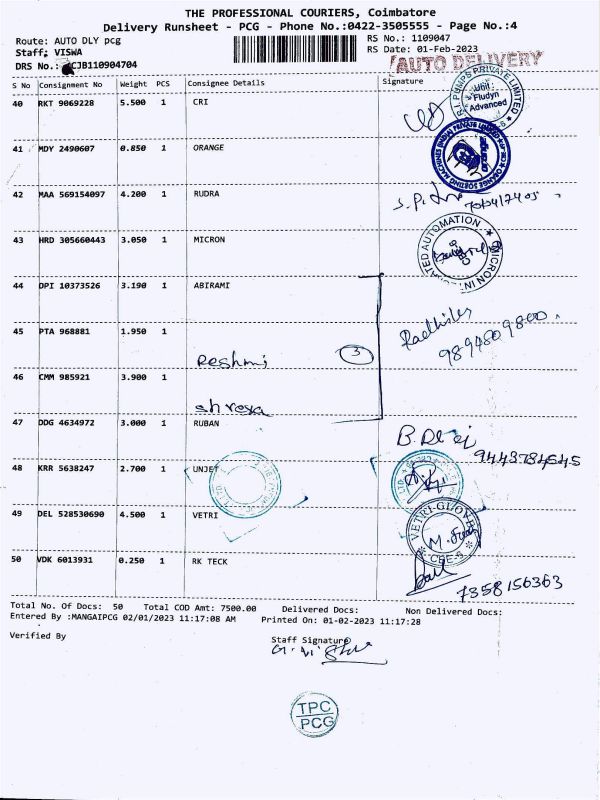 THE PROFESSIONAL COURIERS, Coimbatore
Delivery Runsheet - PCG - Phone No.:0422-3505555 - Page No.:4
Route: AUTO DLY pcg
RS No.: 1109047
Staff: VISWA
RS Date: 01-Feb-2023
DRS No.: CJB110904704
AUTO DELIVERY
S No Consignment No Weight PCS Consignee Details Signature
40 RKT 9069228 5.500 1 CRI
R.I PUMPS PRIVATE LIMITED
Unit
Fludyn
Advanced
41 MDY 2490607 0.850 1 ORANGE
42 MAA 569154097 4.200 1 RUDRA
43 HRD 305660443 3.050 1 MICRON
44 DPI 10373526 3.190 1 ABIRAMI
45 PTA 968881 1.950 1
Reshmi 3
9894809800
46 CMM 985921 3.900 1
shreya
47 DDG 4634972 3.000 1 RUBAN
9443784545
48 KRR 5638247 2.700 1 UNJET
49 DEL 528530690 4.500 1 VETRI
VETRI-GLOVES
CBE-6
50 VDK 6013931 0.250 1 RK TECK
7358156363
Total No. Of Docs: 50 Total COD Amt: 7500.00 Delivered Docs: Non Delivered Docs:
Entered By :MANGAIPCG 02/01/2023 11:17:08 AM Printed On: 01-02-2023 11:17:28
Verified By Staff Signature
TPC
PCG